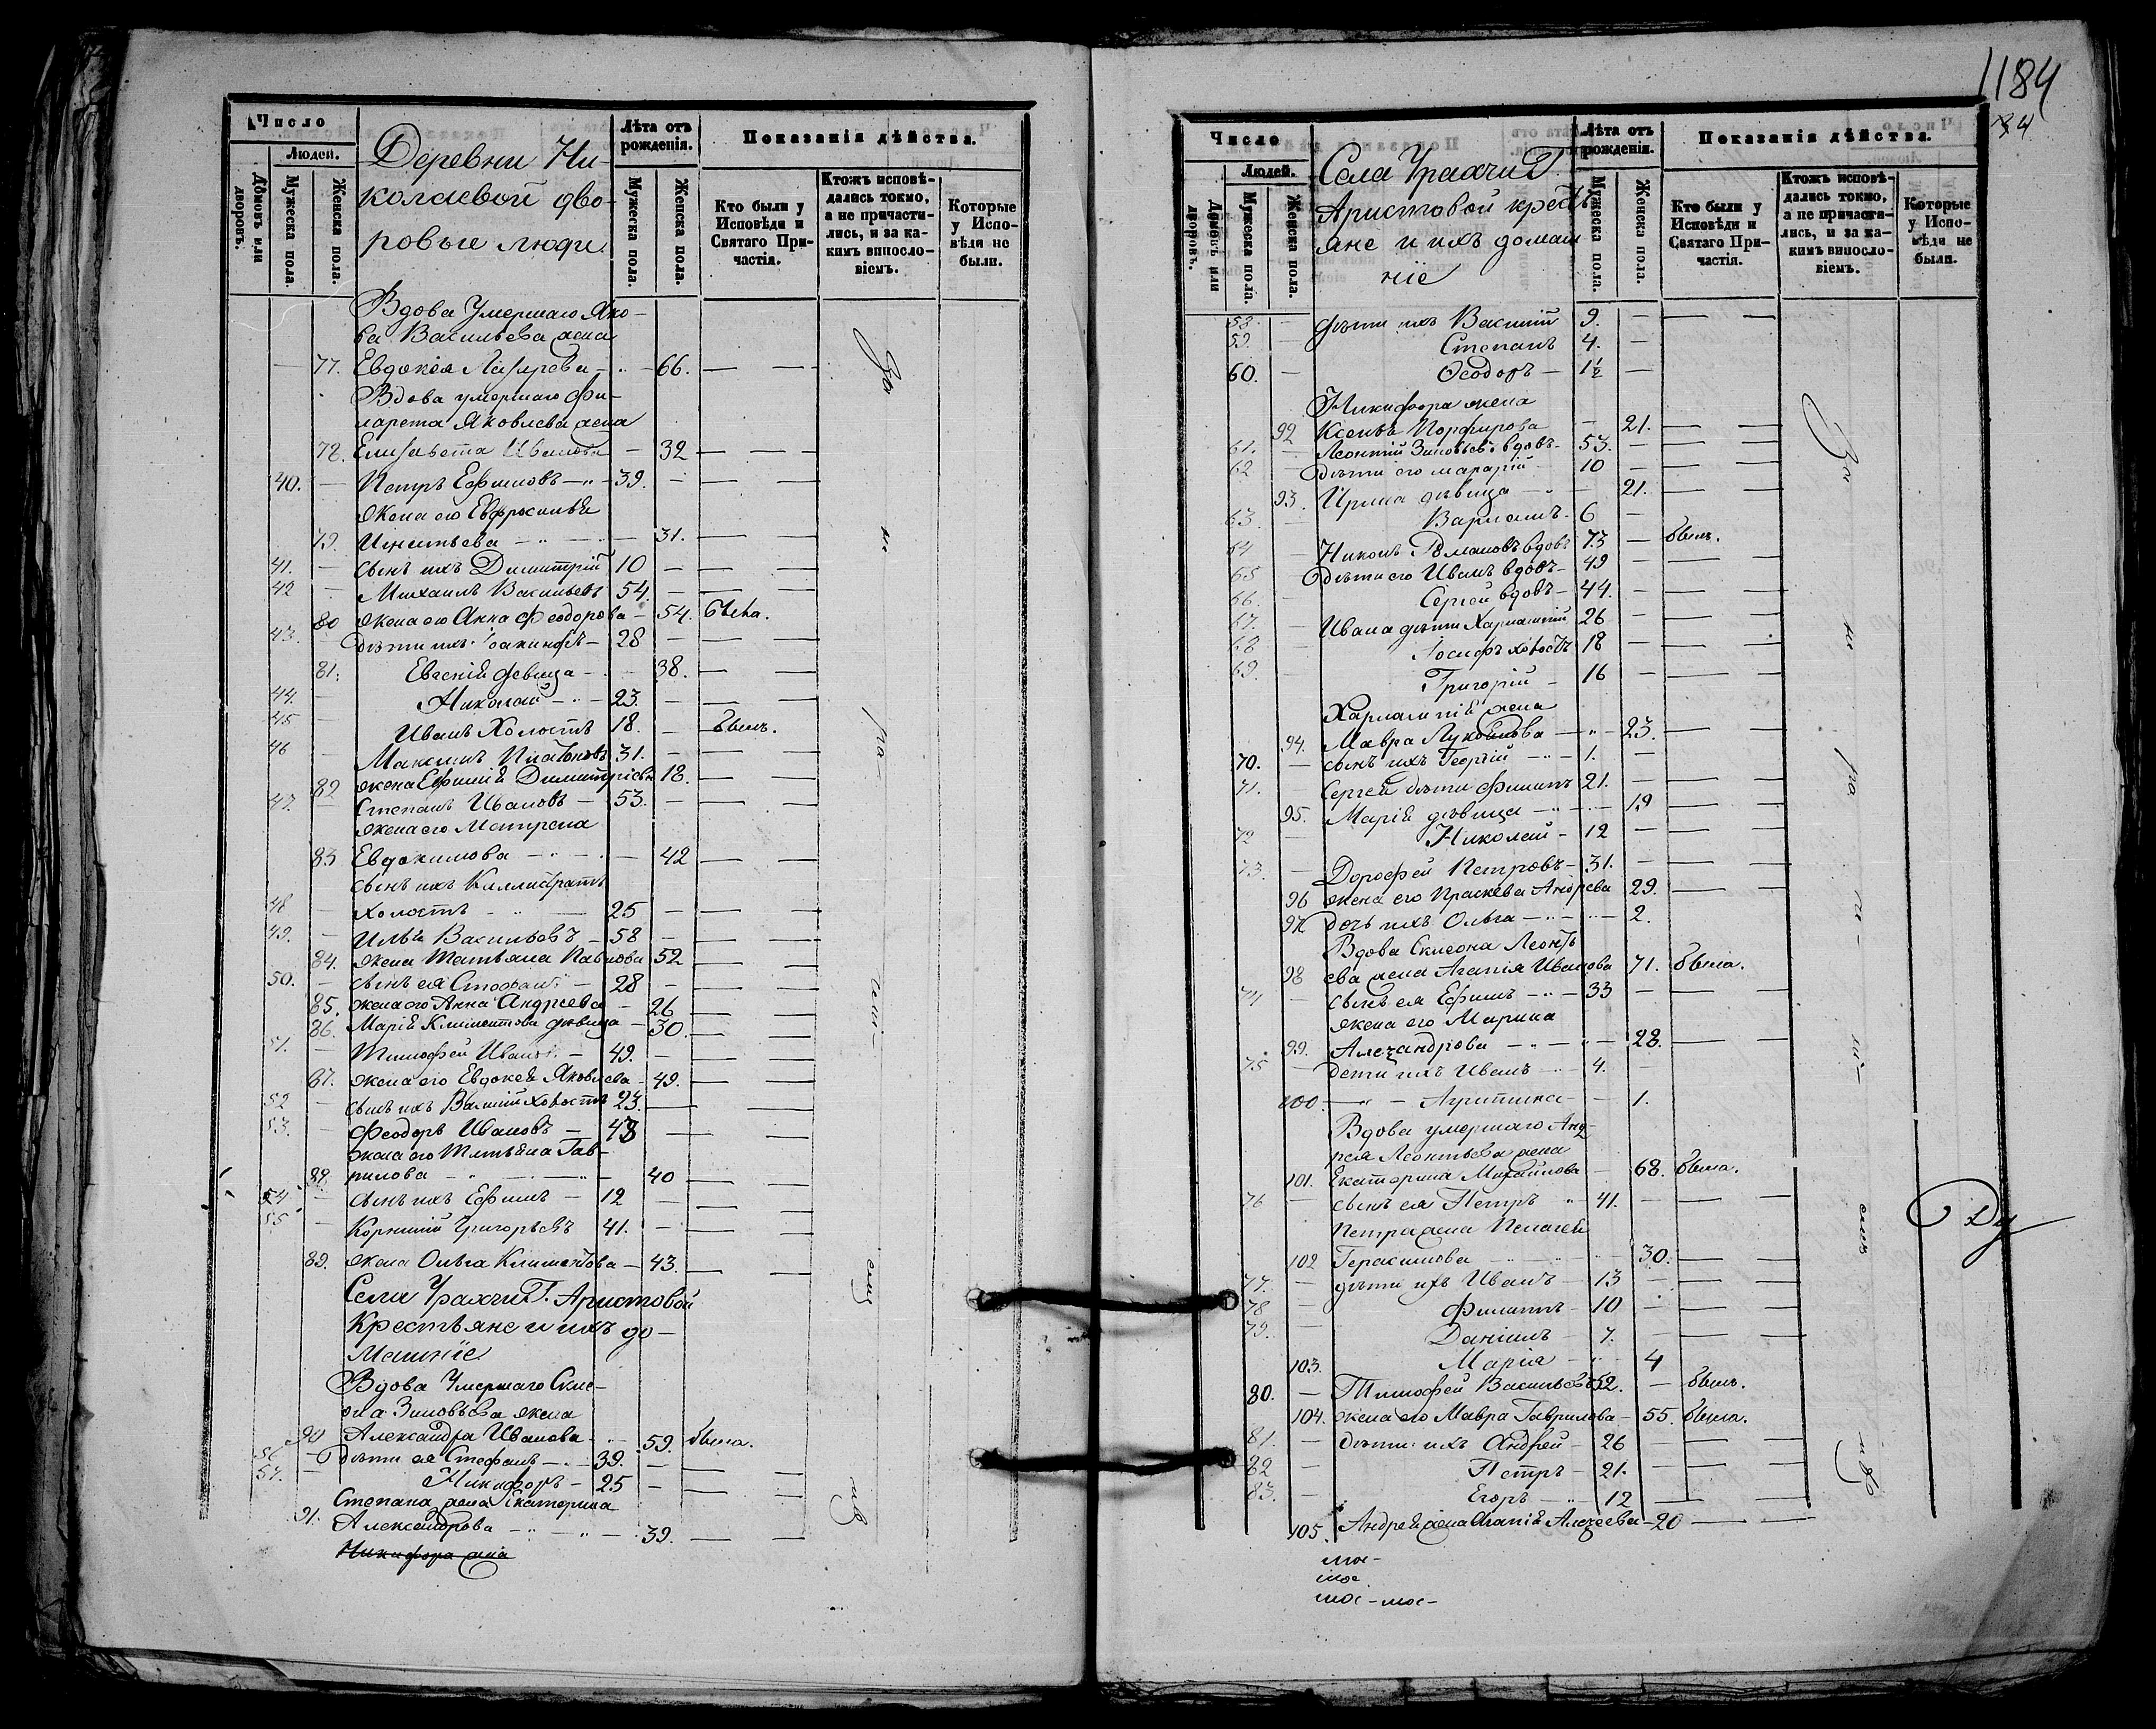 Число
Людей.
Домовъ или дворовъ.
Мужеска пола.
Женска пола.
Деревни Ни-
колаевой дво-
ровые люди
Лѣта отъ рожденія.
Мужеска пола.
Женска пола.
Показанія дѣйства.
Кто были у Исповѣди и Святаго Причастія.
Ктожъ исповѣдались токмо, а не причастились, и за какимъ винословіемъ.
Которые у Исповѣди не были.
Вдова Умершаго Яко-
ва Васильева жена
77. Евдокія Лазарева 66.
Вдова умершаго Фи-
ларета Яковлева жена
78. Елизавета Иванова 32
40. Петръ Ефимовъ 39.
Жена его Евфросинья
79. Игнатьева 31.
41. сынъ ихъ Димитрій 10
42 Михаилъ Васильевъ 54.
80 жена его Анна Феодорова 54. была.
43. дѣти ихъ Іоакинфъ 28
81. Евгенія девица 38.
44. Николай 23.
45 Иванъ Холостъ 18. былъ.
46 Максимъ Платоновъ 31.
82 жена Ефимія Димитріева 18.
47. Степанъ Ивановъ 53.
жена его Матрена
83 Евдокимова 42
сынъ ихъ Каллистратъ
48 холостъ 25
49. Илья Васильевъ 58
84. жена Татьяна Павлова 52
50. сынъ ея Стефанъ 28
85. жена его Анна Андреева 26
86. Марія Климентова дѣвица 30.
51. Тимофей Иванов. 49.
87. жена его Евдокея Яковлева 49.
52 сынъ ихъ Василій холостъ 23.
53. Феодоръ Ивановъ 43
жена его Татьяна Гав-
88. рилова 40
54 сынъ ихъ Ефимъ 12
55 Корнилій Григорьевъ 41.
89. жена Ольга Климентова 43.
Села Урахчи Г. Аристовой
Крестьяне и ихъ до-
машніе
Вдова Умершаго Симе-
она Зиновьева жена
90 Александра Иванова 59. была.
56 Дѣти ея Стефанъ 39.
57. Никифоръ 25
Степана жена Екатерина
91. Александрова 39.
Никифора жена
За
не
ра
1184
34
Число
Людей.
Домовъ или дворовъ.
Мужеска пола.
Женска пола.
Села Урахчи Г.
Аристовой кресть
яне и ихъ домаш
ніе
Лѣта отъ рожденія.
Мужеска пола.
Женска пола.
Показанія дѣйства.
Кто были у Исповѣди и Святаго Причастія.
Ктожъ исповѣдались токмо, а не причастились, и за какимъ винословіемъ.
Которые у Исповѣди не были.
58. дѣти ихъ Василій 9.
59. Степанъ 4.
60. Феодоръ 1½
Никифора жена
92 Ксенья Порфирова 21.
61. Леонтій Зиновьевъ вдовъ 53.
62 Дѣти его 10
93. Ирина дѣвица 21.
63. Варлаамъ 6
64 Никонъ Романовъ вдовъ 73 былъ.
65 Дѣти его Иванъ вдовъ 49
66. Сергей вдовъ 44.
67. Ивана дѣти Харлампій 26
68 Іосифъ холостъ 18
69. Григорій 16
Харлампія жена
94. Мавра Лукоянова 23.
70. сынъ ихъ Георгій 1.
71. Сергея дѣти Филипъ 21.
95. Марія дѣвица 19
72 Николай 12
73. Дорофей Петровъ 31.
96 жена его Праскева Андреева 29.
97 дочь ихъ Ольга 2.
Вдова Симеона Леонть
98 ева жена Агапія Иванова 71. была.
74 сынъ ея Ефимъ 33
жена его Марина
99. Александрова 28.
75 дети ихъ Иванъ 4.
100. Агрипина 1.
Вдова умершаго Анд-
рея Леонтьева жена
101. Екатерина Михайлова 68. была.
76 сынъ ея Петръ 41.
Петра жена Пелагея
102 Герасимова 30.
77. дѣти ихъ Иванъ 13
78 Филиппъ 10
79. Даніилъ 7.
103. Марія 4
80. Тимофей Васильевъ 52. былъ.
104. жена его Мавра Гаврилова 55. была.
81. дѣти ихъ Андрей 26
82 Петръ 21.
83. Егоръ 12
105. Андрея жена Агапія Алексеева 20
За
не
ра